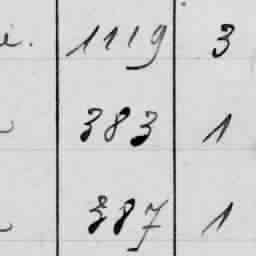 e. 1119 3
383 1
387 1